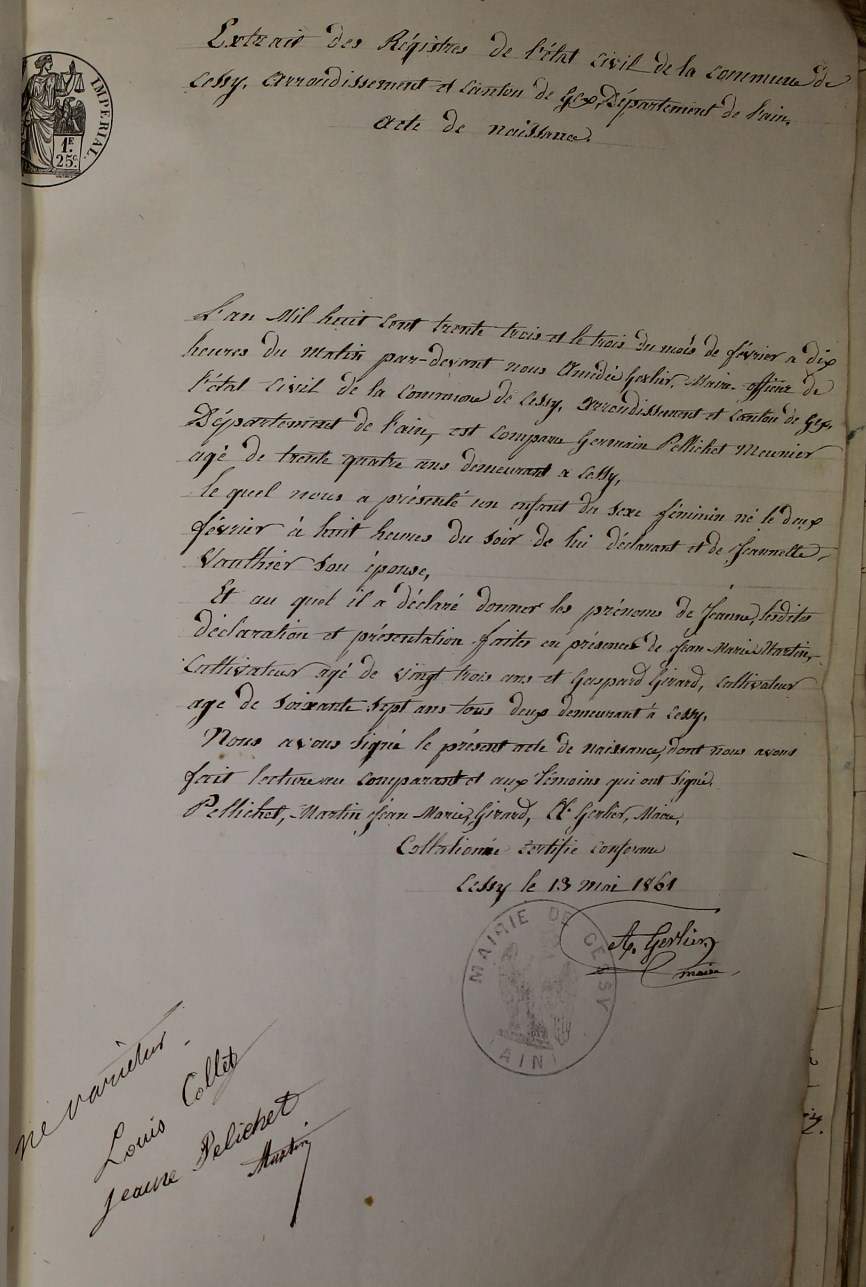 Extrait des Régistres de l'état civil de la commune de
Cessy, arrondissement et canton de Gex, Département de l'ain,
acte de naissance.
IMPERIAL.
1F.
25c.
L'an Mil huit cent trente trois et le trois du mois de février a dix
heures du matin par-devant nous Amédée Gerlier, Maire officier de
l'état civil de la commune de Cessy, arrondissement et canton de Gex,
Département de l'ain, est comparu Germain Pellichet Meunier
agé de trente quatre ans demeurant a Cessy,
le quel nous a présenté un enfant du sexe féminin né le deux
février à huit heures du soir de lui déclarant et de Jeannette
Vauthier son épouse,
Et au quel il a déclaré donner les prénoms de Jeanne, lesdites
déclaration et présentation faites en présence de Jean Marie Martin,
Cultivateur agé de vingt trois ans et Gaspard Girard, cultivateur
age de soixante sept ans tous deux demeurant à Cessy.
Nous avons signé le présent acte de naissance, dont nous avons
fait lecture au comparant et aux témoins qui ont signé.
Pellichet, Martin Jean Marie, Girard, A. Gerlier, Maire,
Collationnée certifié conforme
Cessy le 13 mai 1861
A. Gerlier
maire
MAIRIE DE CESSY
AIN
ne varietur
Louis Collet
Jeanne Pelichet
Martin